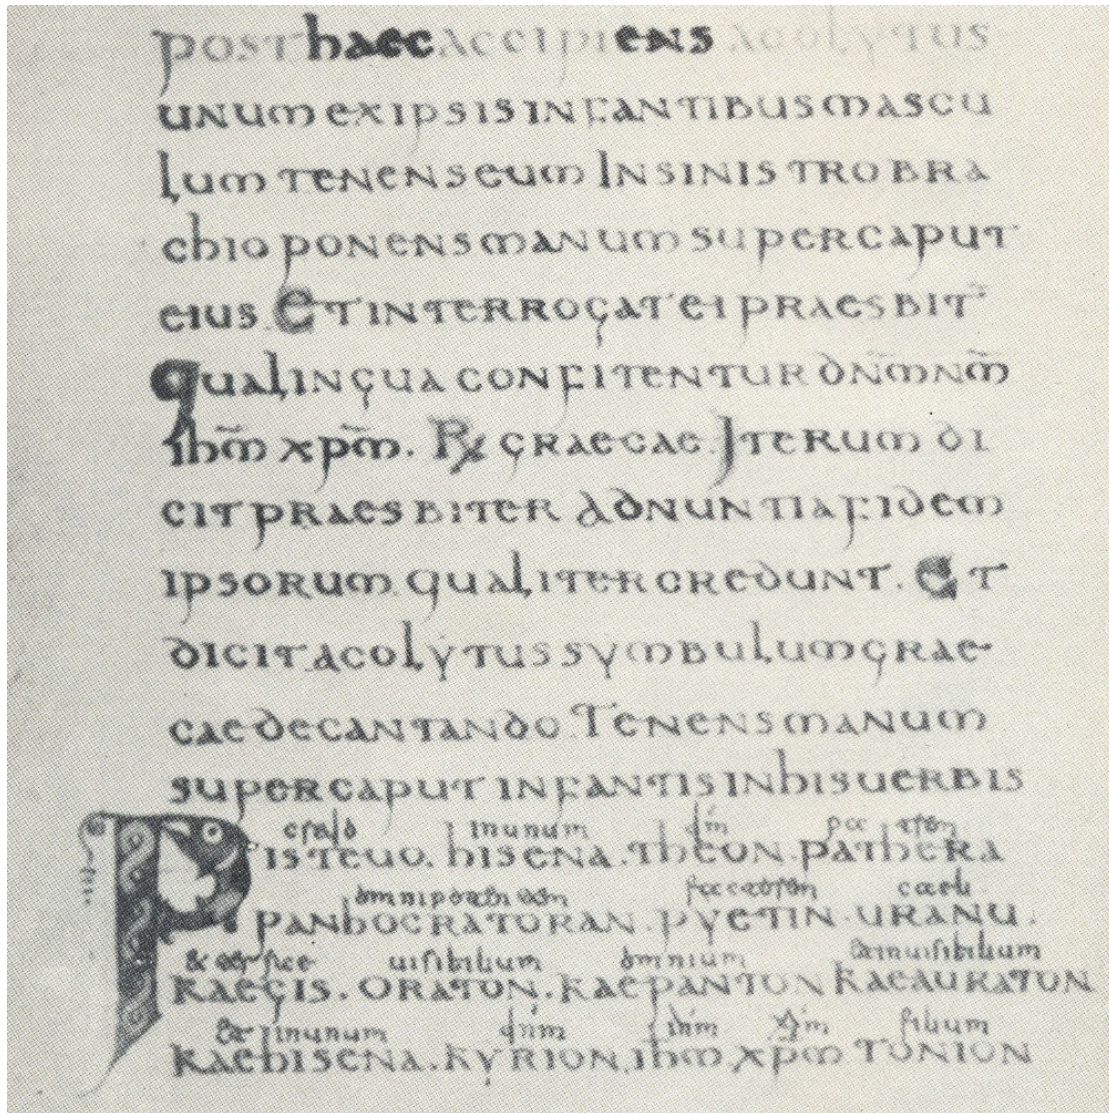 post haec accipiens acolytus
unum ex ipsis infantibus mascu
lum tenens eum In sinistro bra
chio ponens manum super caput
eius. Et interrogat ei praesbit̄
qua lingua confitentur dn̄m nm̄
ihm̄ xpm̄. R̷ graecae. Iterum di
cit praesbiter Adnuntia fidem
ipsorum qualiter credunt. Et
dicit acolytus symbulum grae
cae decantando. Tenens manum
super caput infantis in his uerbis
credo in unum dm̄ patrem
Pisteuo. hisena. theon. pathera
omnipotentem factorem caeli
panhocratoran. pyetin. uranu.
& terrae uisibilium omnium & inuisibilium
kaegis. oraton. kaepanton kaeauraton
& in unum dnm̄ ihm̄ xp̄m filium
kaehisena. kyrion. ihm̄ xpm̄. tonion